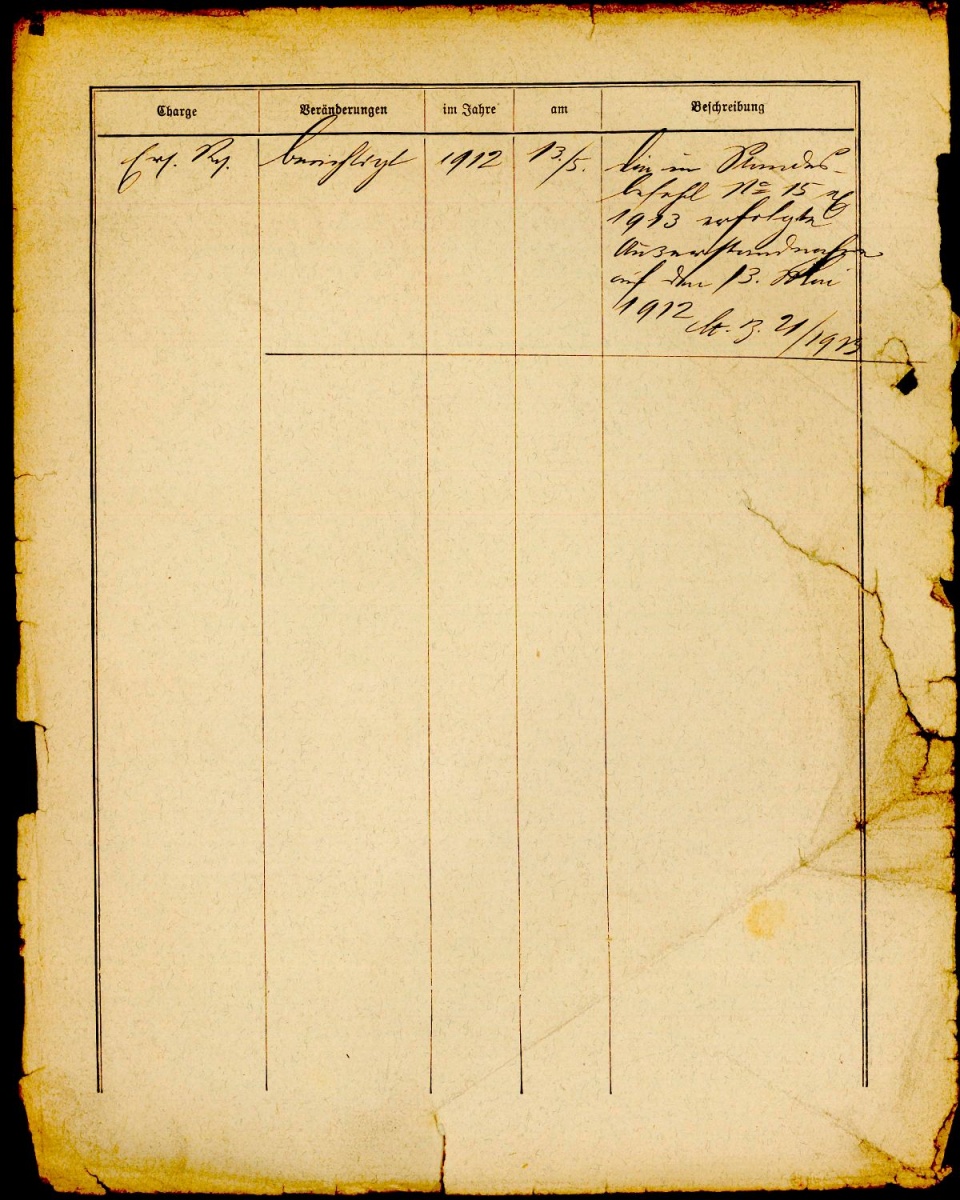 Charge Veränderungen im Jahre am Beschreibung
Ers. Rs. berichtigt 1912 13./5. die im Standes-
befehl No 15 ex
1913 erfolgte
Außerstandnahme
auf den 13. Mai
1912
21/1913